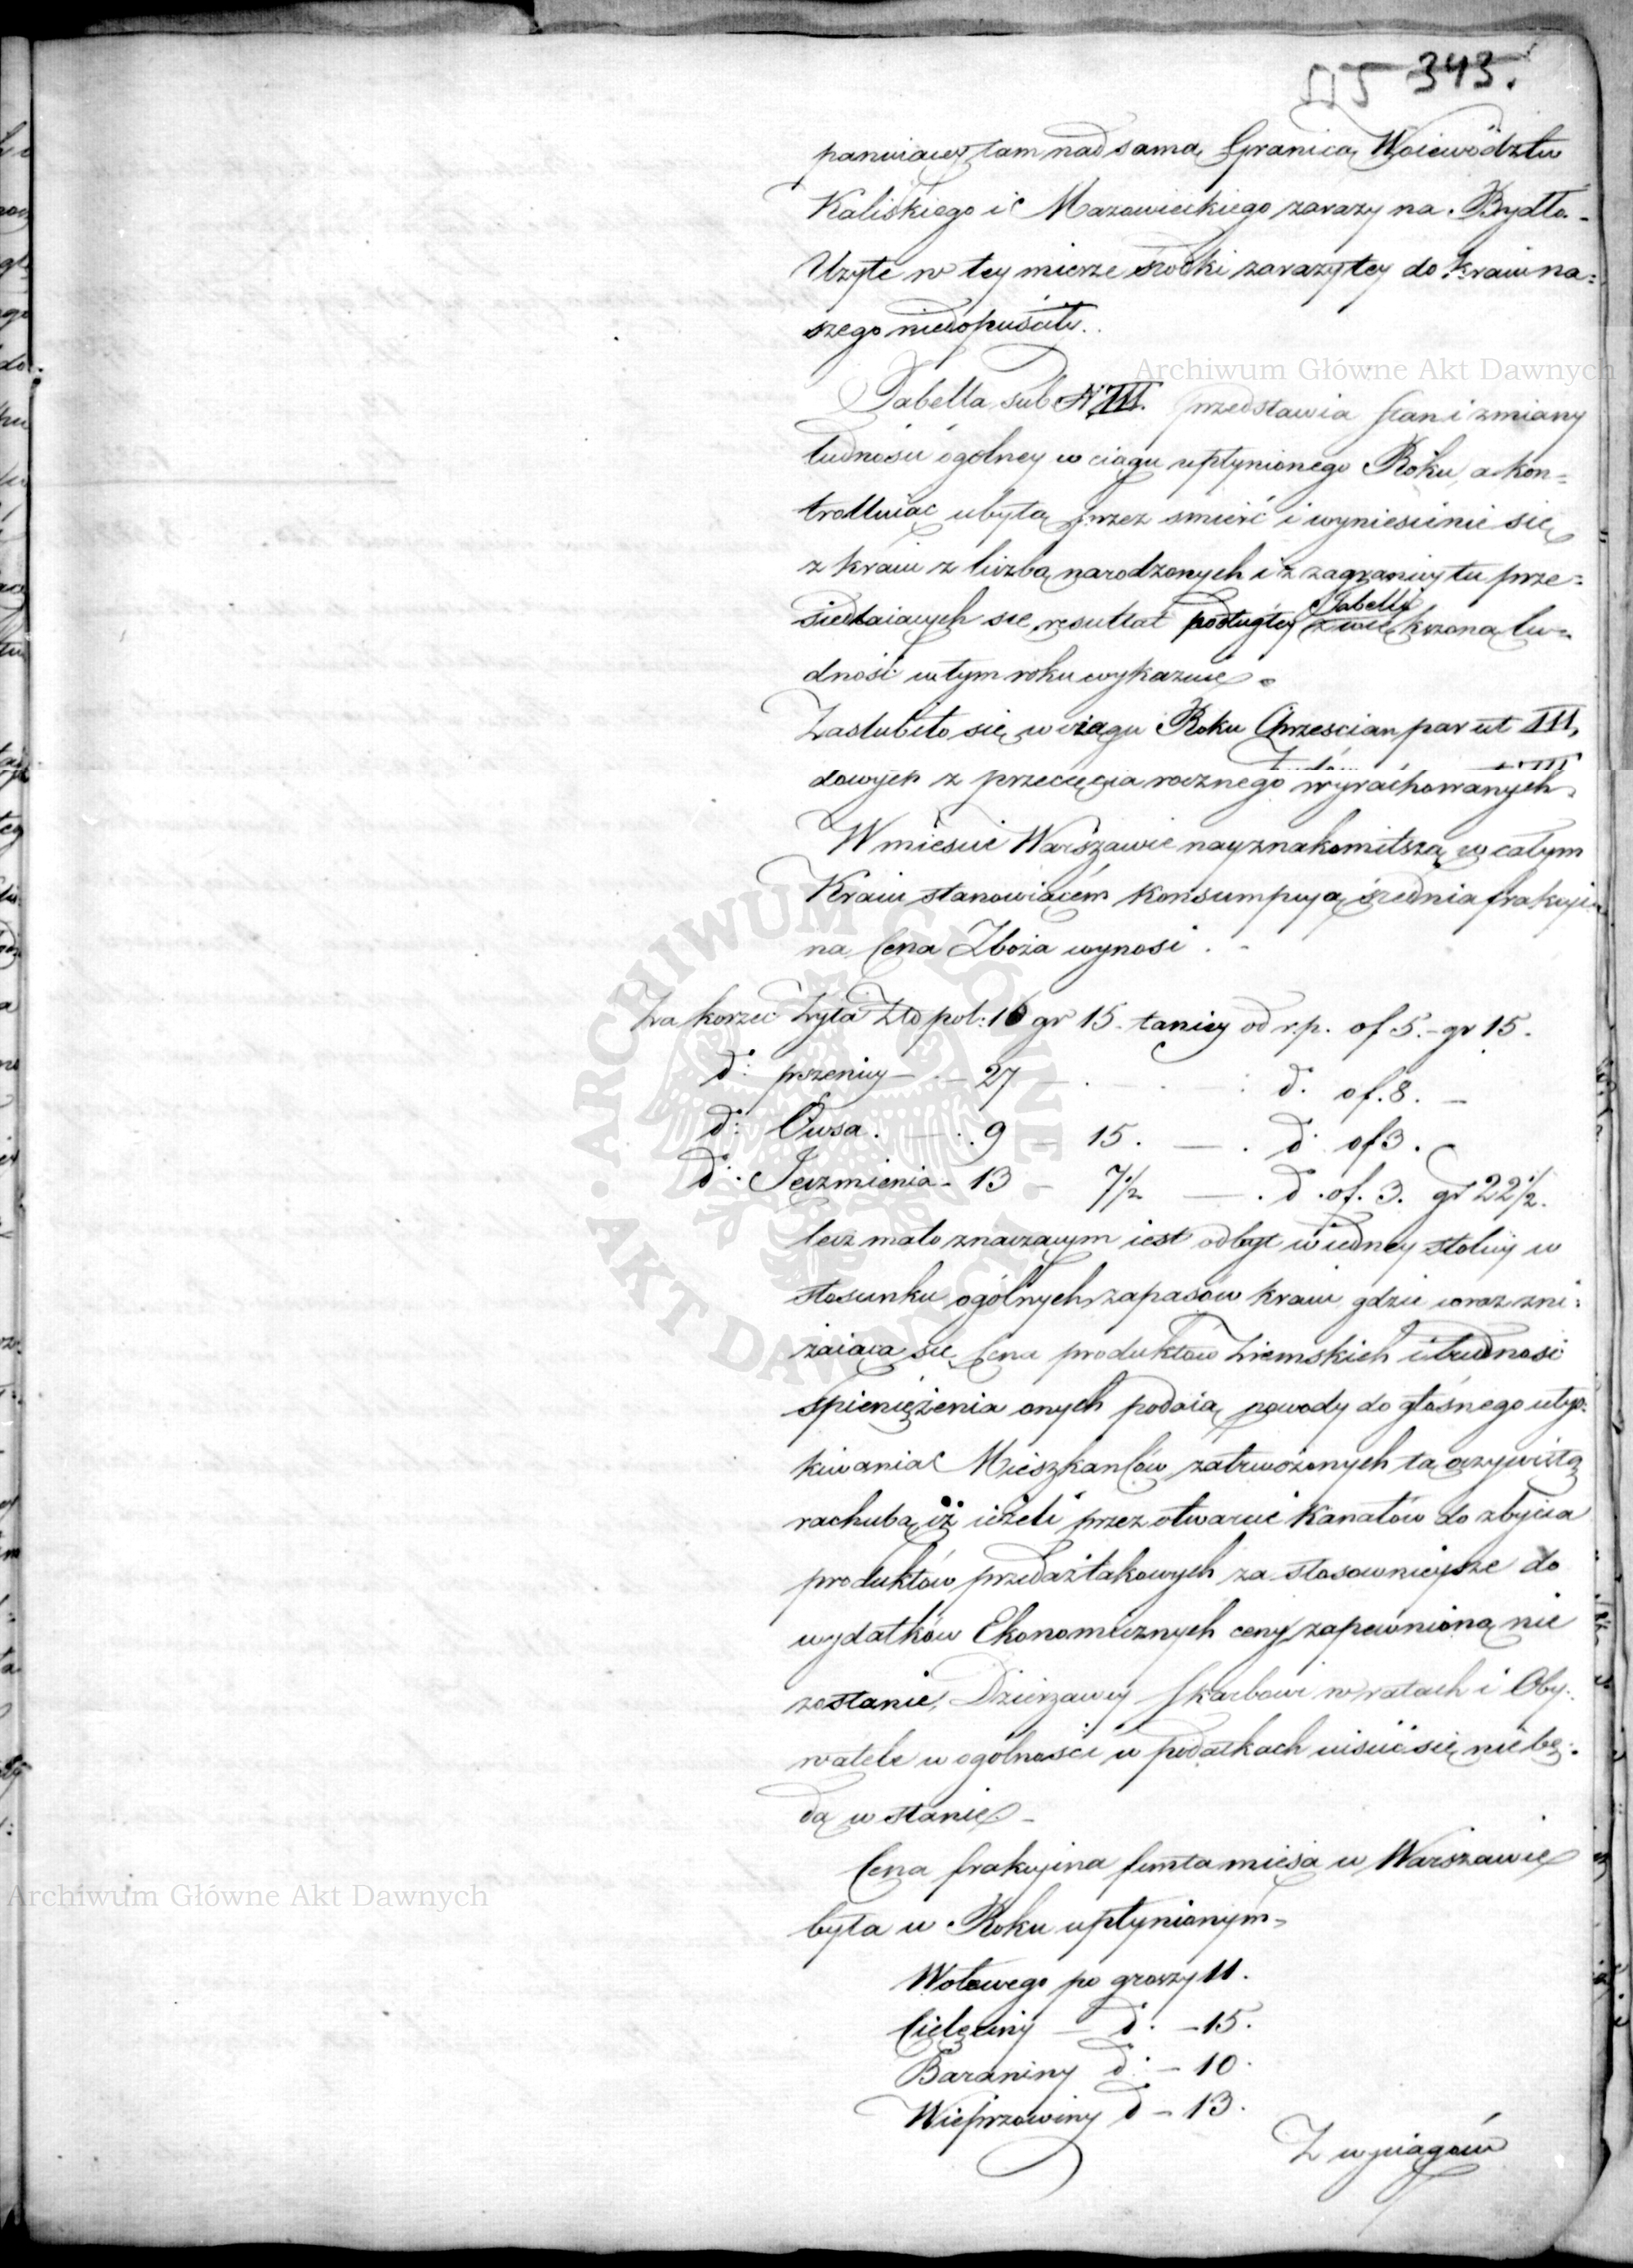 343.
panuiącey tam nad samą Granicą Woiewództw
Kaliskiego i Mazowieckiego zarazy na Bydło.
Użyte w tey mierze środki zarazy tey do kraiu na=
szego niedopuściły.
Archiwum Główne Akt Dawnych
Tabella sub N III. przedstawia stan i zmiany
ludności ogólney w ciągu upłynionego Roku, a kon=
trolluiąc ubytą przez śmierć i wyniesienie się
z kraiu z liczbą narodzonych i z zagranicy tu prze=
Tabelli
siedlaiących się, resultat podług tey zwiększoną lu=
dność w tym roku wykazuie.
Zaślubiło się w ciągu Roku Chrześcian par ut III,
dowych z przecięcia rocznego wyrachowanych.
W mieście Warszawie nayznakomitszą w całym
Kraiu stanowiącém konsumpcyą średnia frakcyi
na Cena Zboża wynosi.
Za korzec Żyta Złó pol: 16 gr 15. taniey od r.p. o f 5. gr 15.
d: pszenicy — 27 — d. o f. 8. —
d: Owsa. — 9 — 15. — d. o f 3.
d: Jęczmienia — 13 — 7½ — d. o f. 3. gr 22½.
lecz mało znaczącym iest odbyt w iedney stolicy w
stosunku ogólnych zapasów kraiu, gdzie coraz zni=
żaiąca się Cena produktów Ziemskich i trudność
spieniężenia onych podaią powody do głośnego utys=
kiwania Mieszkanców zatrwożonych tą oczywistą
rachubą, iż ieżeli przez otwarcie Kanałów do zbycia
produktów przedaż takowych za stosownieysze do
wydatków Ekonomicznych ceny zapewnioną nie
zostanie, Dzierżawcy Skarbowi w ratach i Oby=
watele w ogólności w podatkach uiścić się nie bę=
dą w stanie.
Cena frakcyina funta mięsa w Warszawie
Archiwum Główne Akt Dawnych
była w Roku upłynionym=
Wołowego po groszy 11.
Cielęciny — d. — 15.
Baraniny d: — 10.
Wieprzowiny d — 13.
Z wyciągów
ARCHIWUM GŁÓWNE AKT DAWNYCH